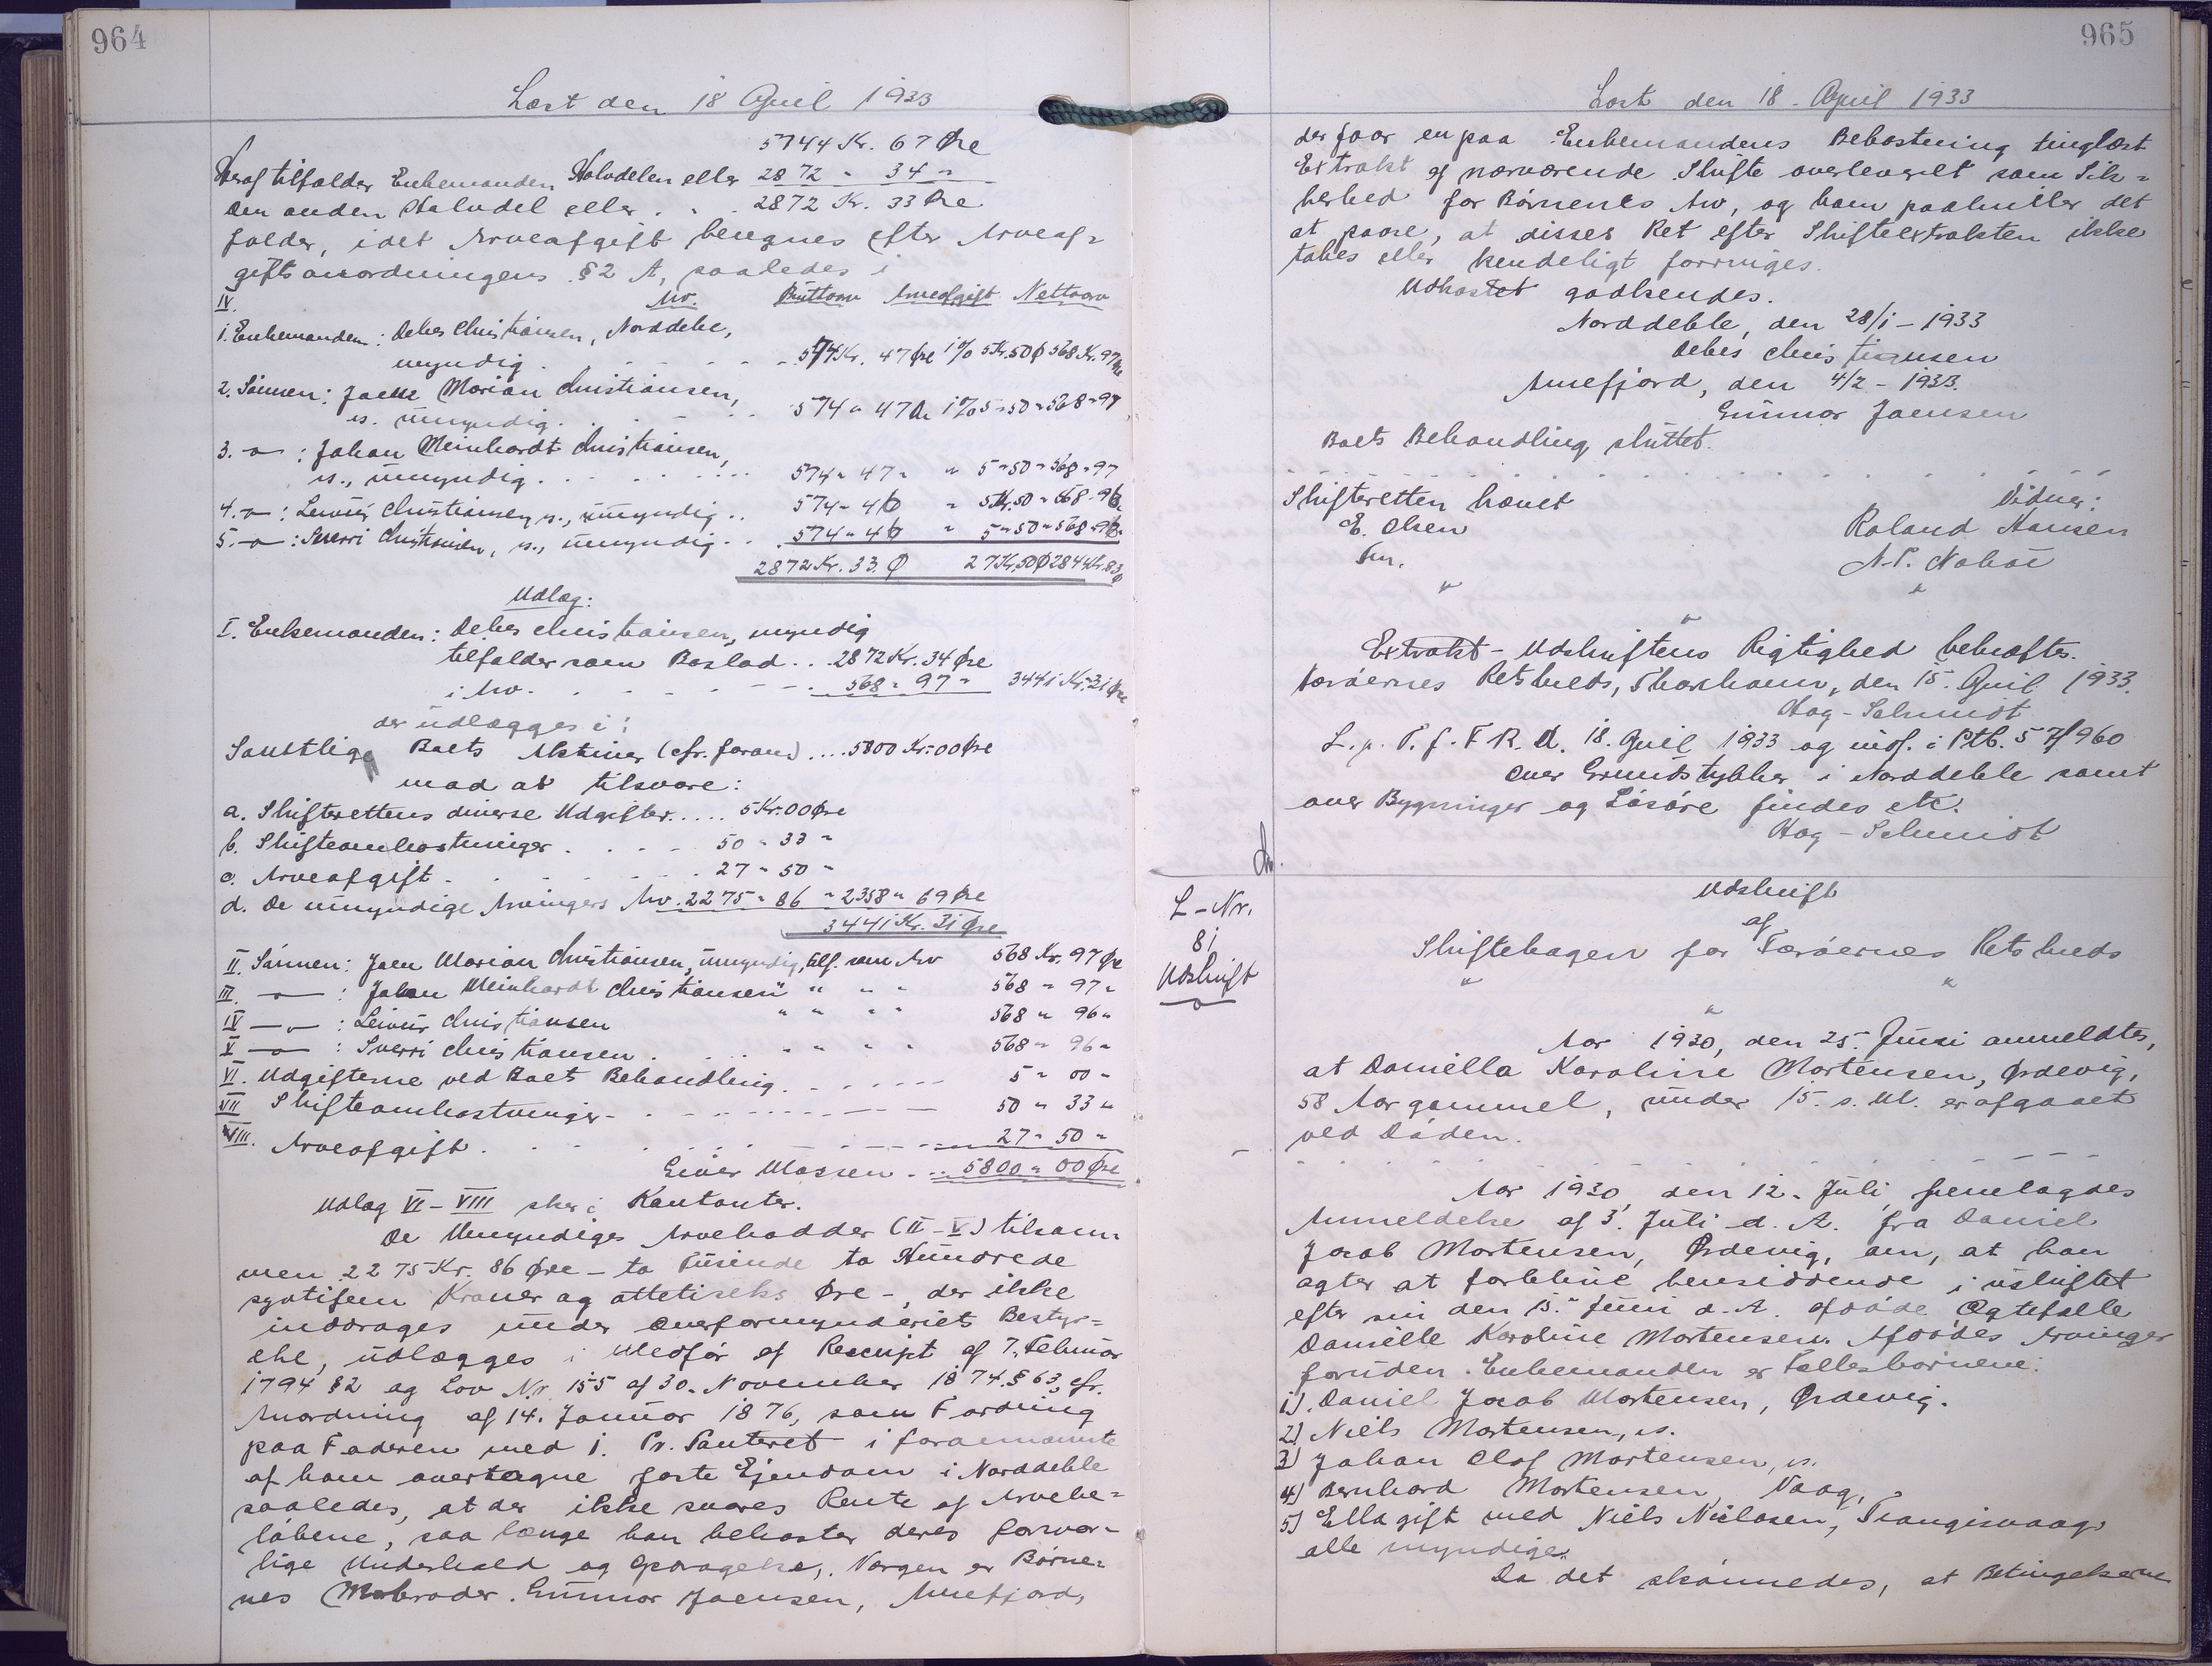 964
Læst den 18 April 1933
5744 Kr. 67 Øre
Heraf tilfalder Enkemanden Halvdelen eller 2872 " 34 "
Den anden Halvdel eller . . . 2872 Kr. 33 Øre
falder, idet Arveafgift beregnes efter Arveaf=
giftsanordningens § 2 A, saaledes i
IV. Arv. Bruttoarv Arveafgift Nettoarv
1. Enkemanden: Debes Christiansen, Norddeble,
myndig . . . . . 574 Kr. 47 Øre 1% 5 Kr. 50 Ø 568 Kr. 97 Øre
2. Sønnen: Joen Marian Christiansen,
s. umyndig. . . . 574 " 47 Ør 1% 5 " 50 " 568 " 97
3. -o- : Johan Meinhardt Christiansen,
s., umyndig. . . . . . 574 " 47 " " 5 " 50 " 568 " 97
4. -o- : Leivur Christiansen, s., umyndig .. 574 " 46 " 5 Kr. 50 " 568 " 96
5. -o- : Sverri Christiansen, s., umyndig . . 574 " 46 " 5 " 50 " 568 " 96
2872 Kr. 33. Ø 27 Kr. 50 Ø 2844 Kr. 83 Ø
Udlæg:
I. Enkemanden: Debes Christiansen, myndig
tilfalder som Boslod . . . 2872 Kr. 34 Øre
i Arv. . . . . . . 568 " 97 " 3441 Kr. 31 Øre
der udlægges i:
Samtlige Boets Aktiver (cfr. foran) .... 5800 Kr. 00 Øre
mod at tilsvare:
a. Skifterettens diverse Udgifter ..... 5 Kr. 00 Øre
b. Skifteomkostninger . . . . 50 " 33 "
c. Arveafgift . . . . . . . 27 " 50 "
d. De umyndige Arvingers Arv. 2275 " 86 " 2358 " 69 Øre
3441 Kr. 31 Øre
II. Sønnen: Joen Marian Christiansen, umyndig, tilf. som Arv 568 Kr. 97 Øre
III. -o- : Johan Meinhardt Christiansen " " " " 568 " 97 "
IV -o- : Leivur Christiansen " " " " 568 " 96 "
V -o- : Sverri Christiansen . . . " " " " 568 " 96 "
VI. Udgifterne ved Boets Behandling . . . . . . 5 " 00 "
VII Skifteomkostninger . . . . . . . . 50 " 33 "
VIII. Arveafgift . . . . . . . . . . 27 " 50 "
Giver Massen . . . 5800 " 00 Øre
Udlæg VI - VIII sker i Kontanter.
De Umyndiges Arvelodder (II - V) tilsam=
men 2275 Kr. 86 Øre - to Tusinde to Hundrede
syvtifem Kroner og ottetiseks Øre -, der ikke
inddrages under Overformynderiets Besty=
relse, udlægges i Medfør af Rescript af 7. Februar
1794 § 2 og Lov Nr. 155 af 30. November 1874 § 63, cfr.
Anordning af 14. Januar 1876, som Fordring
paa Faderen med 1. Pr. Panteret i forannævnte
af ham overtagne faste Ejendom i Norddeble
saaledes, at der ikke svares Rente af Arvebe=
løbene, saa længe han bekoster deres forsvar=
lige Underhold og Opdragelse,. Værgen er Børne=
nes Morbroder Gunnar Joensen, Arnefjord,
965
Læst den 18. April 1933
der faar en paa Enkemandens Bekostning tinglæst
Extrakt af nærværende Skifte overleveret som Sik=
kerhed for Børnenes Arv, og ham paahviler det
at paase, at disses Ret efter Skifteextrakten ikke
tabes eller kendeligt forringes.
Udkastet godkendes.
Norddeble, den 28/1 - 1933
Debes Christiansen
Arnefjord, den 4/2 - 1933.
Gunnar Joensen
Boets Behandling sluttet.
Skifteretten hævet Vidner:
E. Olsen Roland Hansen
Fm. N. P. Nolsøe
" "
Extrakt - Udskriftens Rigtighed bekræftes.
Færøernes Retskreds, Thorshavn, den 15. April 1933.
Høg-Schmidt
L. p. T. f. F. R. d. 18. April 1933 og indf. i Ptb. S 7/960
Over Grundstykker i Norddeble samt
over Bygninger og Løsøre findes etc.
Høg-Schmidt
L-Nr.
81
Udskrift
Udskrift
af
Skiftebogen for Færøernes Retskreds
" "
"
Aar 1930, den 25. Juni anmeldtes,
at Daniella Karoline Mortensen, Ørdevig,
58 Aar gammel, under 15. s. M. er afgaaet
ved Døden.
Aar 1930, den 12. Juli, fremlagdes
Anmeldelse af 3. Juli d. A. fra Daniel
Jacob Mortensen, Ørdevig, om, at han
agter at forblive hensiddende i uskiftet
efter sin den 15. Juni d. A. afdøde Ægtefælle
Danielle Karoline Mortensen. Afdødes Arvinger
foruden Enkemanden er Fællesbørnene:
1). Daniel Jacob Mortensen, Ørdevig.
2) Niels Mortensen, s.
3) Johan Olof Mortensen, s.
4) Bernhard Mortensen, Vaag,
5) Ella gift med Niels Nielasen, Trangisvaag,
alle myndige.
Da det skønnedes, at Betingelserne